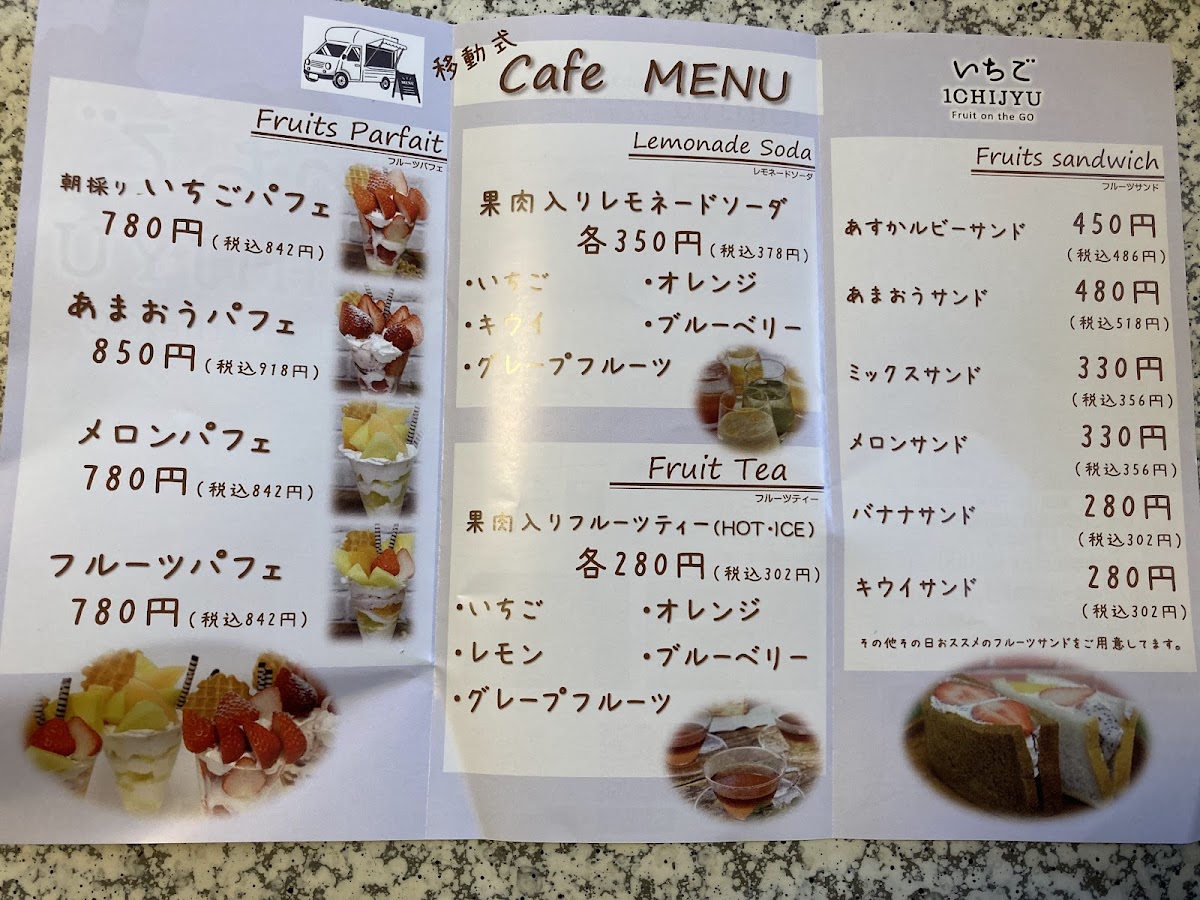 移動式
Cafe MENU
Fruits Parfait
フルーツパフェ
朝採り いちごパフェ
780円(税込842円)
あまおうパフェ
850円(税込918円)
メロンパフェ
780円(税込842円)
フルーツパフェ
780円(税込842円)
Lemonade Soda
レモネードソーダ
果肉入りレモネードソーダ
各350円(税込378円)
・いちご ・オレンジ
・キウイ ・ブルーベリー
・グレープフルーツ
Fruit Tea
フルーツティー
果肉入りフルーツティー(HOT・ICE)
各280円(税込302円)
・いちご ・オレンジ
・レモン ・ブルーベリー
・グレープフルーツ
いちご
1CHIJYU
Fruit on the GO
Fruits sandwich
フルーツサンド
あすかルビーサンド 450円
(税込486円)
あまおうサンド 480円
(税込518円)
ミックスサンド 330円
(税込356円)
メロンサンド 330円
(税込356円)
バナナサンド 280円
(税込302円)
キウイサンド 280円
(税込302円)
その他その日おススメのフルーツサンドをご用意してます。